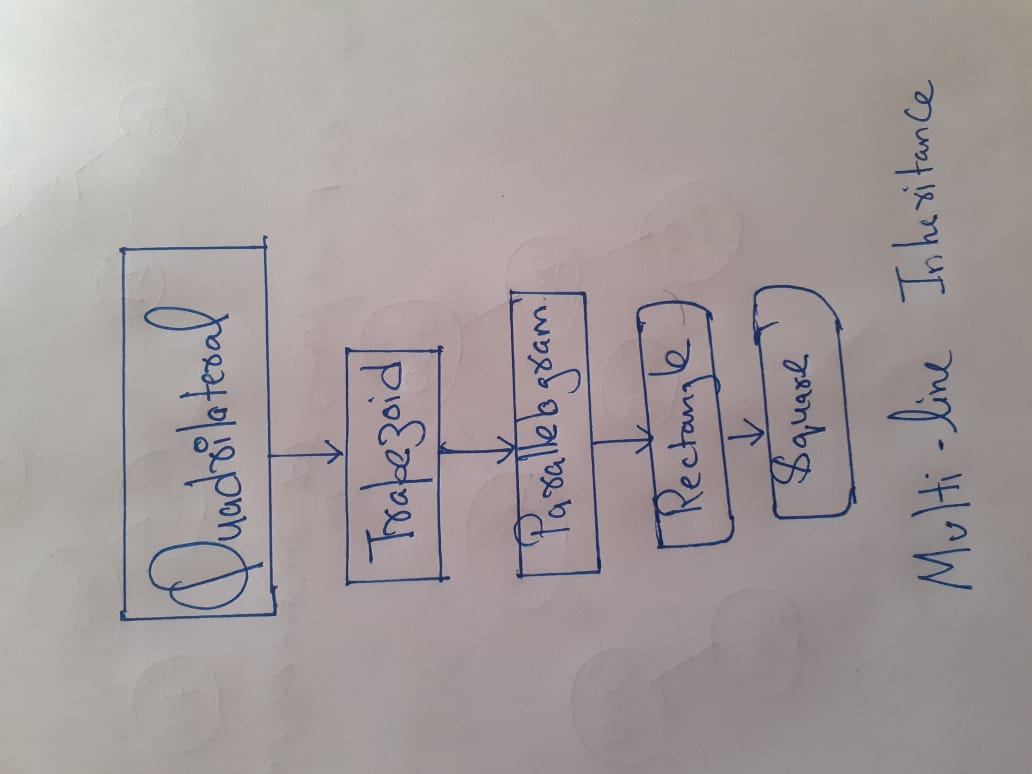 Quadrilateral
Trapezoid
Parallelogram
Rectangle
Square
Multi-line Inheritance